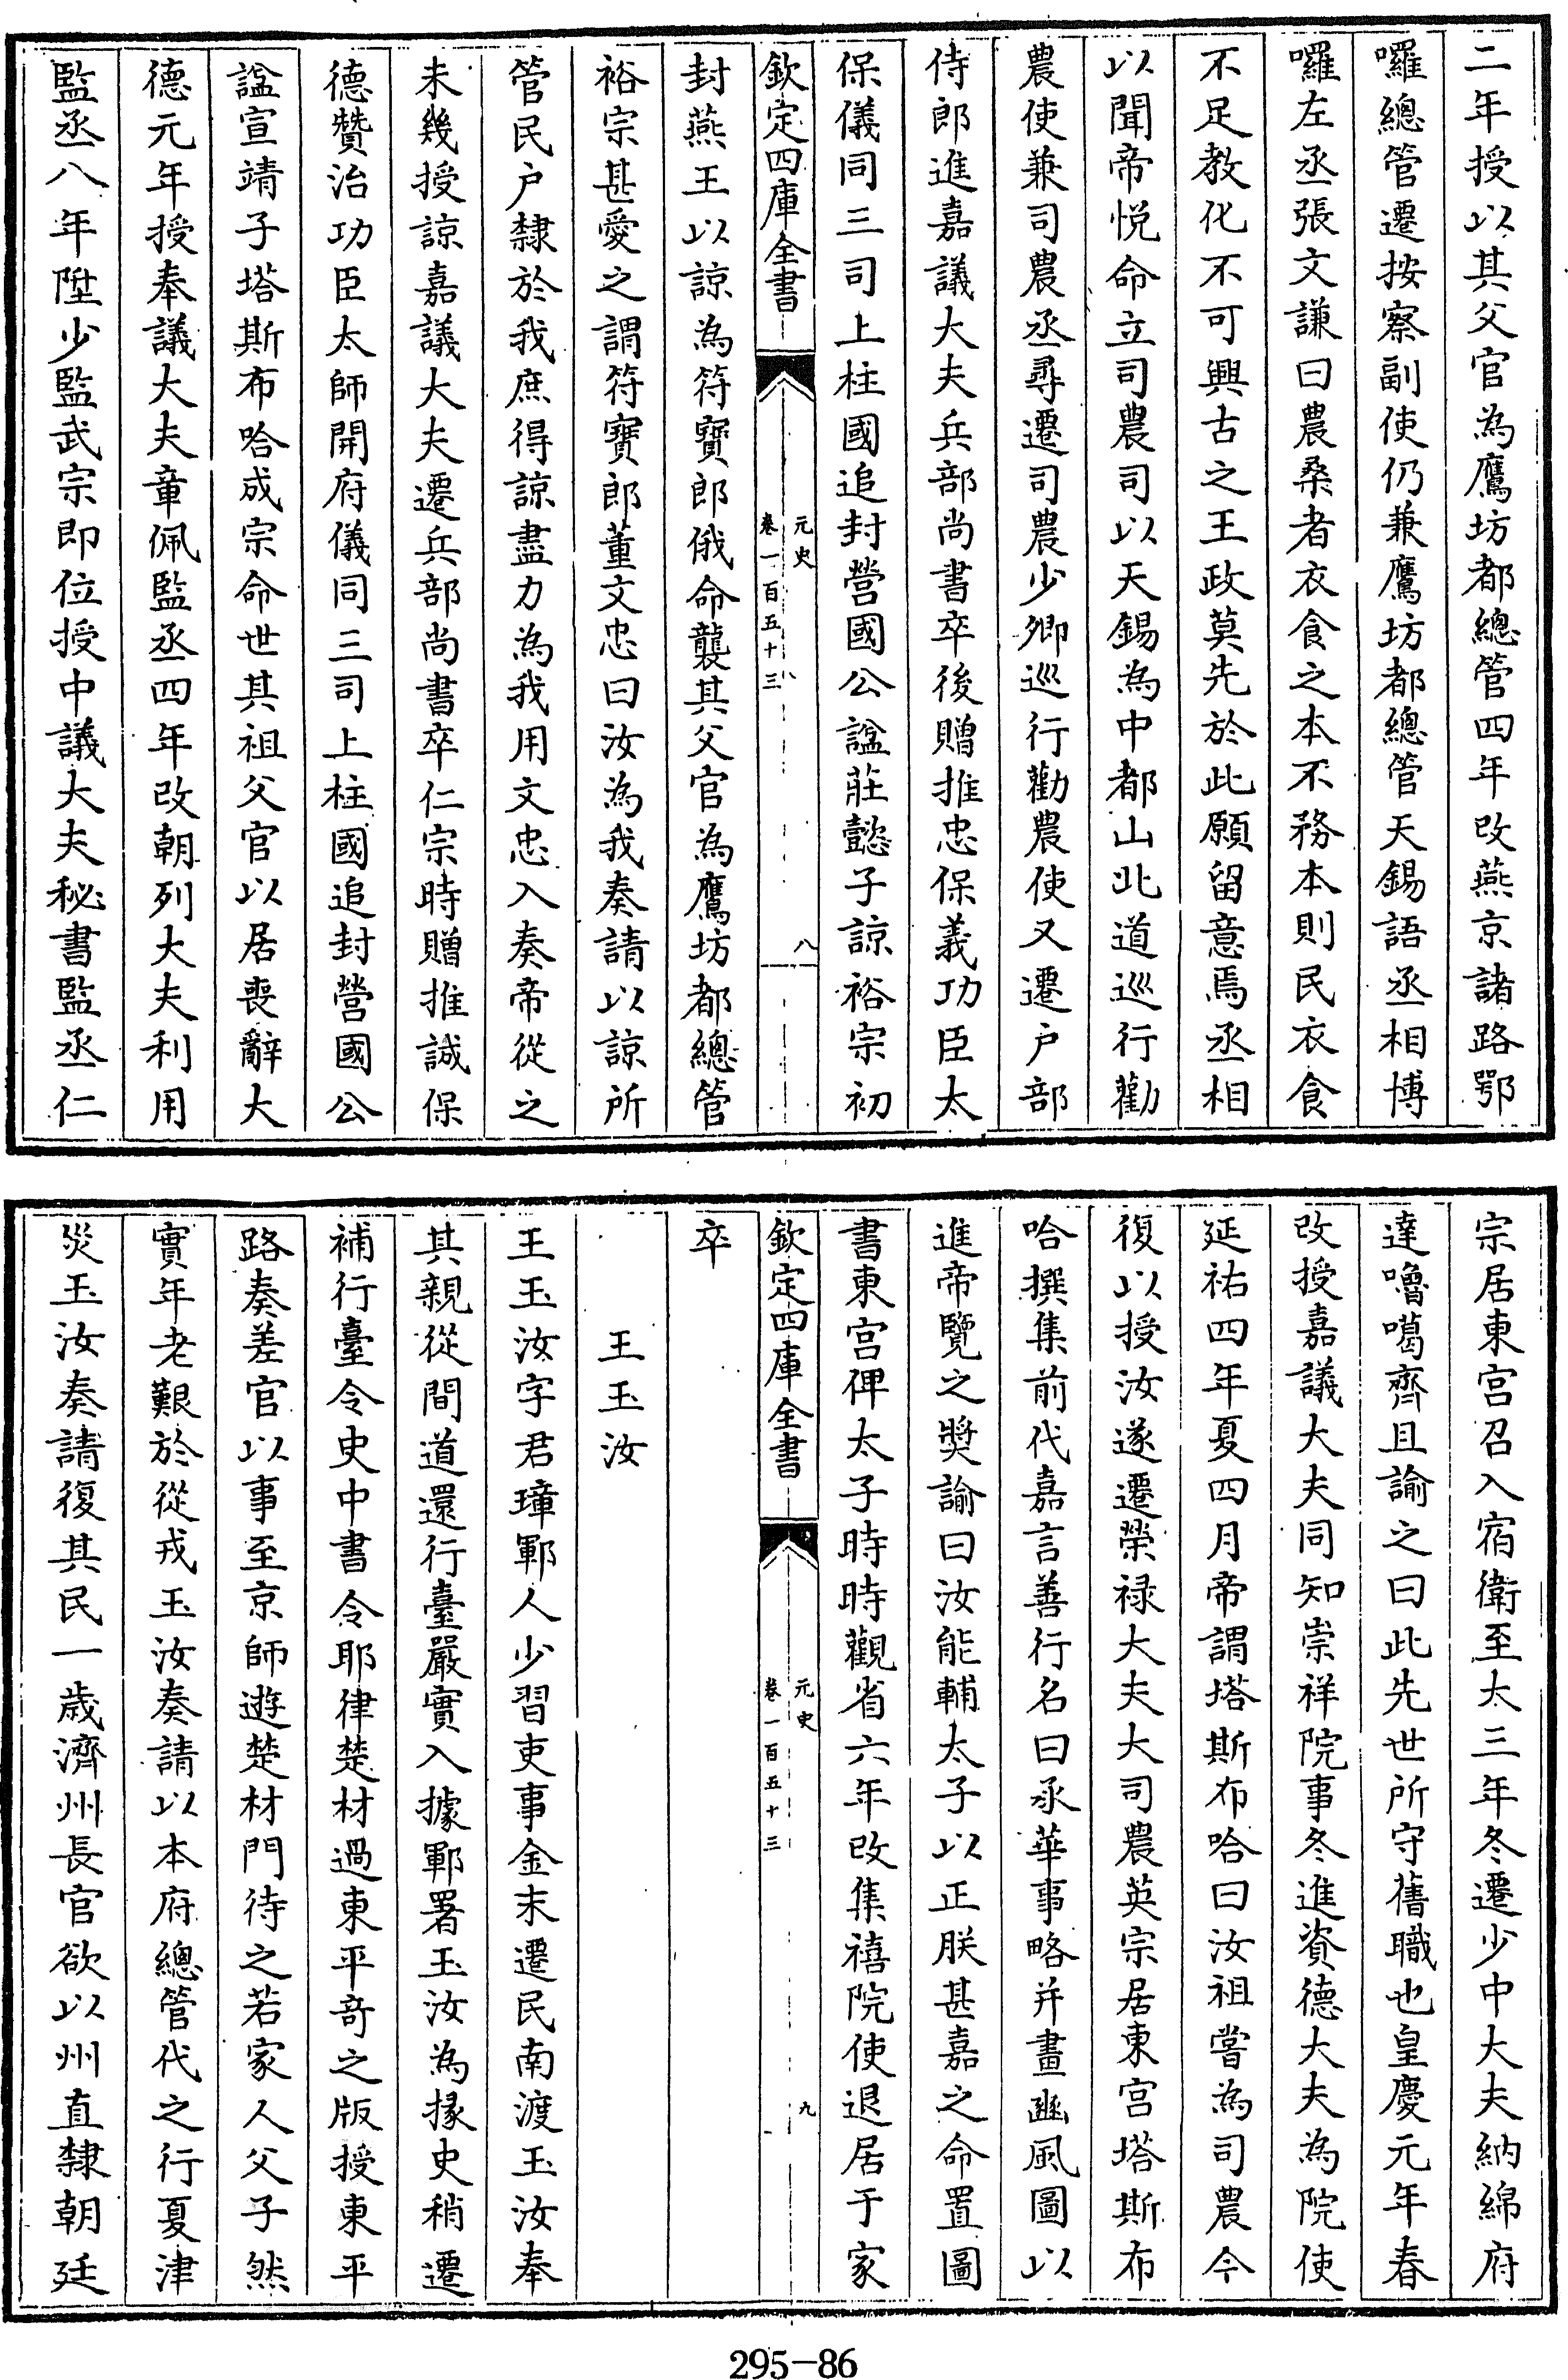 二年授以其父官為鷹坊都總管四年改燕京諸路鄂
囉總管遷按察副使仍兼鷹坊都總管天錫語丞相博
囉左丞張文謙曰農桑者衣食之本不務本則民衣食
不足教化不可興古之王政莫先於此願留意焉丞相
以聞帝悦命立司農司以天錫為中都山北道巡行勸
農使兼司農丞尋遷司農少卿巡行勸農使又遷户部
侍郎進嘉議大夫兵部尚書卒後贈推忠保義功臣太
保儀同三司上柱國追封營國公諡莊懿子諒裕宗初
欽定四庫全書
元史
卷一百五十三
八
封燕王以諒為符寶郎俄命襲其父官為鷹坊都總管
裕宗甚愛之謂符寶郎董文忠曰汝為我奏請以諒所
管民户隸於我庶得諒盡力為我用文忠入奏帝從之
未幾授諒嘉議大夫遷兵部尚書卒仁宗時贈推誠保
德贊治功臣太師開府儀同三司上柱國追封營國公
諡宣靖子塔斯布哈成宗命世其祖父官以居喪辭大
德元年授奉議大夫章佩監丞四年改朝列大夫利用
監丞八年陞少監武宗即位授中議大夫秘書監丞仁
宗居東宫召入宿衛至大三年冬遷少中大夫納綿府
達嚕噶齊且諭之曰此先世所守舊職也皇慶元年春
改授嘉議大夫同知崇祥院事冬進資德大夫為院使
延祐四年夏四月帝謂塔斯布哈曰汝祖嘗為司農今
復以授汝遂遷榮禄大夫大司農英宗居東宫塔斯布
哈撰集前代嘉言善行名曰承華事略并畫豳風圖以
進帝覽之奬諭曰汝能輔太子以正朕甚嘉之命置圖
書東宫俾太子時時觀省六年改集禧院使退居于家
欽定四庫全書
元史
卷一百五十三
九
卒
王玉汝
王玉汝字君璋鄆人少習吏事金末遷民南渡玉汝奉
其親從間道還行臺嚴實入據鄆署玉汝為掾史稍遷
補行臺令史中書令耶律楚材過東平奇之版授東平
路奏差官以事至京師遊楚材門待之若家人父子然
實年老艱於從戎玉汝奏請以本府總管代之行夏津
災玉汝奏請復其民一歲濟州長官欲以州直隸朝廷
295-86